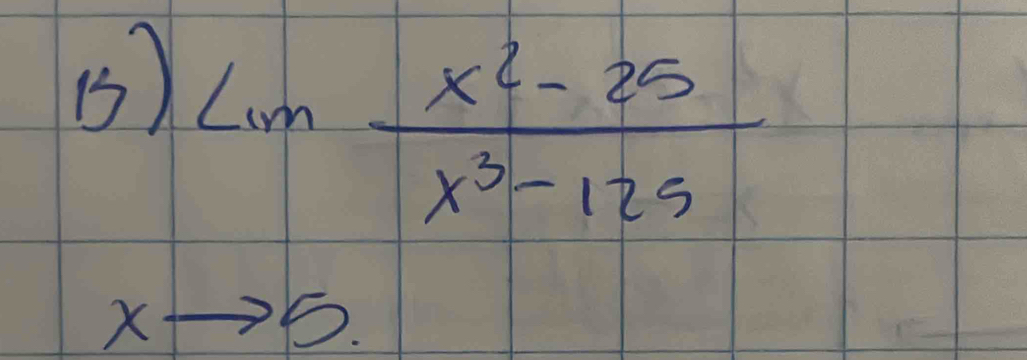 15) Lim x² - 25 / x³ - 125
x → 5.